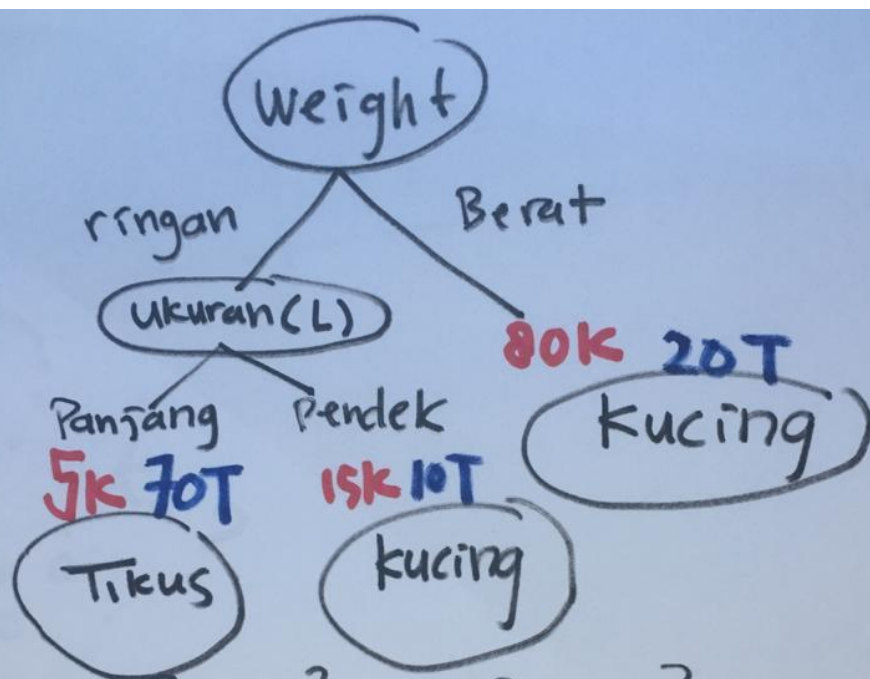 Weight
ringan Berat
ukuran(L)
80K 20T
Kucing
Panjang Pendek
5K 70T 15K 10T
Tikus kucing